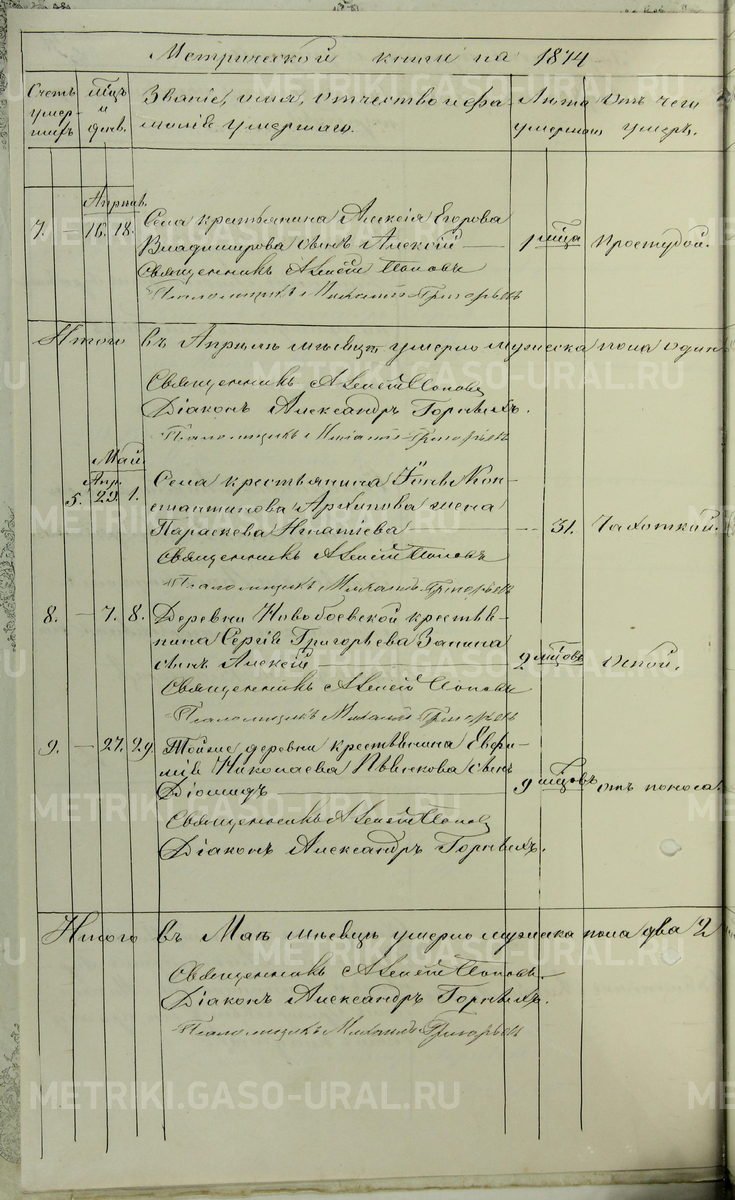 Метрической книги на 1874
Счетъ умер-шихъ
Мѣц. и день.
Званіе, имя, отчество и фа-
милія умершаго.
Лѣта умершаго
Отъ чего умеръ.
Апрѣль.
7. — 16. 18. Села крестьянина Алексія Егорова
Владимирова сынъ Алексій — 1 мѣца Простудой.
Священникъ Алексій Поповъ
Псаломщикъ Михаилъ Григорьевъ
Итого въ Апрѣлѣ мѣсяцѣ умерло мужеска пола одинъ
Священникъ Алексій Поповъ
Діаконъ Александръ Горныхъ.
Псаломщикъ Михаилъ Григорьевъ
Май.
Апр.
5. 29. 1. Села крестьянина Кон-
стантинова Архипова жена
Параскева Игнатіева — 31. Чахоткой.
Священникъ Алексій Поповъ
Псаломщикъ Михаилъ Григорьевъ
8. — 7. 8. Деревни Новобоевской крестья-
нина Сергія Григорьева Запина
сынъ Алексій — 2 мѣцовъ Оспой.
Священникъ Алексій Поповъ
Псаломщикъ Михаилъ Григорьевъ
9. — 27. 29. Тойже деревни крестьянина Евфи-
мія Николаева Пьянкова сынъ
Діомидъ — 9 мѣцовъ отъ поноса.
Священникъ Алексій Поповъ
Діаконъ Александръ Горныхъ.
Итого въ Маѣ мѣсяцѣ умерло мужеска пола два 2
Священникъ Алексій Поповъ
Діаконъ Александръ Горныхъ.
Псаломщикъ Михаилъ Григорьевъ
METRIKI.GASO-URAL.RU